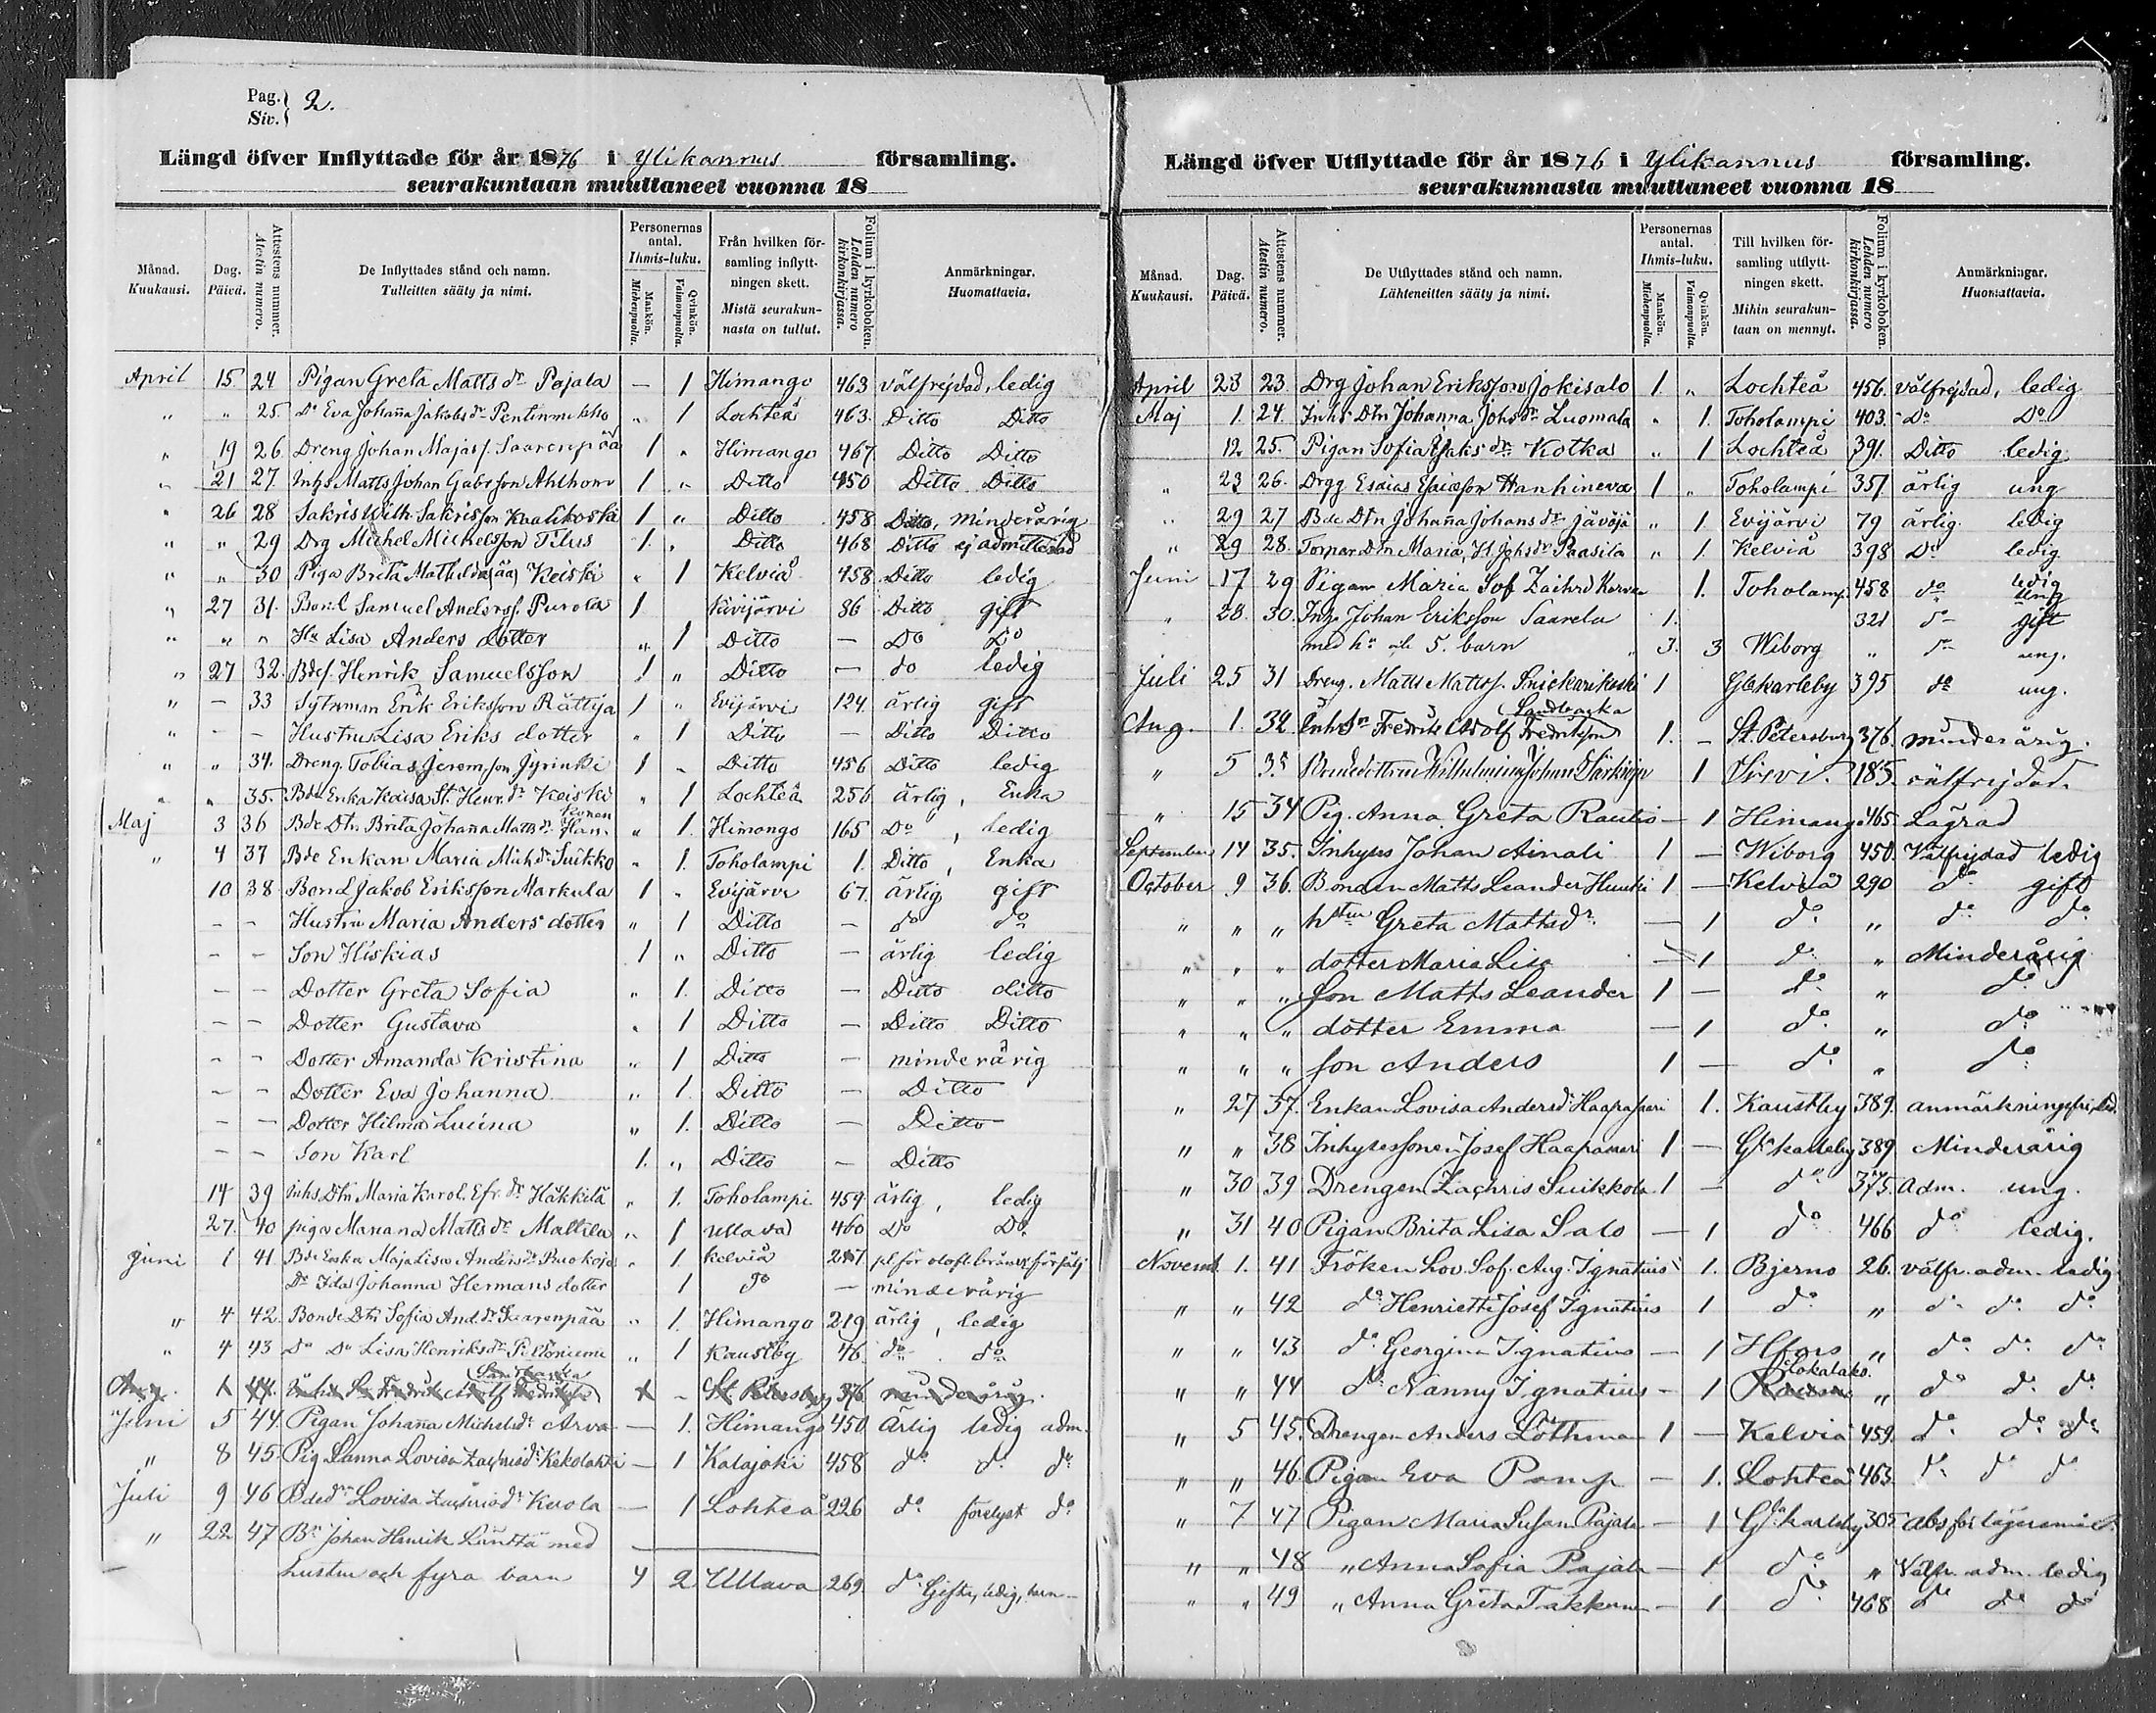 Pag. 2.
Siv.
Längd öfver Inflyttade för år 1876 i Ylikannus församling.
seurakuntaan muuttaneet vuonna 18
Månad. Kuukausi.
Dag. Päivä.
Attestens nummer. Atestin numero.
De Inflyttades stånd och namn.
Tulleitten sääty ja nimi.
Personernas antal. Ihmis-luku.
Mankön. Miehenpuolia.
Qvinkön. Vaimonpuolia.
Från hvilken församling inflyttningen skett.
Mistä seurakunnasta on tullut.
Folium i kyrkoboken. Lehden numero kirkonkirjassa.
Anmärkningar. Huomattavia.
April 15 24 Pigan Greta Matts dr Pajala — 1 Himango 463 välfrejdad, ledig
" " 25. Do Eva Johanna Jakobs dr Pentinmikko " 1 Lochteå 463. Ditto Ditto
" 19 26. Dreng Johan Majass. Saarenpää 1 " Himango 467. Ditto Ditto
" 21 27. Inhs Matts Johan Gabrsson Ahlhom 1 " Ditto 450 Ditto Ditto
" 26 28 Sakris Wilh. Sakrisson Kvalikoski 1 " Ditto 458 Ditto, minderårig
" " 29 Drg Michel Michelsson Tilus 1 " Ditto 468 Ditto ej admitterad
" " 30 Piga Brita Mathilda Keiski " 1 Kelviå 458 Ditto ledig
" 27 31. Bond Samuel Anderss. Purola 1 Kivijärvi 86 Ditto gift
" " " Hu Lisa Anders dotter " 1 Ditto — Do Do
" 27 32. Bdes. Henrik Samuelsson 1 " Ditto — do ledig
" — 33 Sytnman Erik Eriksson Rättyä 1 " Evijärvi 124. ärlig gift
" — — Hustru Lisa Eriks dotter " 1 Ditto — Ditto Ditto
" " 34. Dreng. Tobias Jeremsson Jyrinki 1 " Ditto 456 Ditto ledig
" " 35. Bde Enka Kaisa St. Henr. dr Keiski " 1 Lochteå 256 Ärlig, Enka
Maj 3 36 Bde Dtn Brita Johanna Matts dr " 1. Himango 165 Do, ledig
" 4 37 Bde Enkan Maria Mich dr Suikko " 1. Toholampi 1. Ditto, Enka
10 38. Bond Jakob Eriksson Markula 1 " Evijärvi 67. ärlig gift
— — Hustru Maria Anders dotter " 1 Ditto — do do
— — Son Hiskias 1 " Ditto — ärlig ledig
— — Dotter Greta Sofia " 1. Ditto — Ditto ditto
— — Dotter Gustava " 1 Ditto — Ditto Ditto
— — Dotter Amanda Kristina " 1 Ditto — minderårig
— — Dotter Eva Johanna " 1. Ditto — Ditto
— — Dotter Hilma Lucina " 1. Ditto — Ditto
— — Son Karl 1. " Ditto — Ditto
14 39 Inhs. Dtn Maria Karol. Efr. dr Häkkilä " 1. Toholampi 459 ärlig, ledig
27. 40 piga Mariana Matts dr Mattila " 1 Ullava 460 Do Do
Juni 1 41 Bde Enka Maja Lisa Anders dr Puokoja " 1. Kelviå 267
Do Ida Johanna Hermans dotter 1 do — minderårig
" 4 42. Bonde Dtn Sofia And. dr Saarenpää " 1. Himango 219 ärlig, ledig
" 4 43 Do Do Lisa Henriks dr Peltoniemi " 1 Kaustby 46. do do
Aug. 1 44. Inhs Sn Fredrik Adolf Fredriksson Sandbacka 1 - St. Petersburg 376 minderårig.
Juni 5 44. Pigan Johanna Michelsdr Arva — 1. Himango 450 Ärlig ledig adm.
" 8 45. Pig Sanna Lovisa Zachrisdr Kekolahti — 1 Kalajoki 458 do do do
Juli 9 46 Bdedr Lovisa Zachrisdr Kuola — 1 Lohteå 226 do förelyst do
" 22 47 Bn Johan Henrik Lintta med
hustru och fyra barn 4 2 Ullava 269 do Gifta, ledig, barn —
Längd öfver Utflyttade för år 1876 i Ylikannus församling.
seurakunnasta muuttaneet vuonna 18
Månad. Kuukausi.
Dag. Päivä.
Attestens nummer. Atestin numero.
De Utflyttades stånd och namn.
Lähteneitten sääty ja nimi.
Personernas antal. Ihmis-luku.
Mankön. Miehenpuolia.
Qvinkön. Vaimonpuolia.
Till hvilken församling utflyttningen skett.
Mihin seurakuntaan on mennyt.
Folium i kyrkoboken. Lehden numero kirkonkirjassa.
Anmärkningar. Huomattavia.
April 28 23. Drg Johan Eriksson Jokisalo 1. " Lochteå 456. välfrejdad, ledig
Maj 1. 24. Inhs Dtn Johanna Johs dr Luomala " 1. Toholampi 403. Do Do
12 25. Pigan Sofia Esaks dr Kotka " 1 Lochteå 391. Ditto ledig
" 23 26. Drgg Esaias Esaiasson Hanhineva 1 " Toholampi 357 ärlig ung
" 29 27 Bde Dtn Johanna Johans dr Jävöjä " 1. Evijärvi 79 ärlig. ledig
" 29 28. Torpar Dtn Maria H. Johs dr Paasila " 1. Kelviå 398 Do ledig
Juni 17 29 Pigan Maria Sof Zachrd 1. Toholamp. 458 do ledig
" 28. 30. Inhs Johan Eriksson Saarela 1. 321 do gift
med hu och 5. barn 3. 3 Wiborg " do ung.
Juli 25 31 Dreng. Matts Mattss. Snickarikoski 1 Glkarleby 395 do ung.
Aug. 1. 32. Inhs Sn Fredrik Adolf Fredriksson Sandbacka 1. - St. Petersburg 376. minderårig.
" 5 33 Bondedottren Wilhelmina Johans Särkioja 1 Virvi. 185. välfrejdad.
" 15 34 Pig. Anna Greta Rautio — 1 Himango 465. Lägrad
September 14 35. Inhyses Johan Ainali 1 — Wiborg 450. Välfrejdad ledig
October 9 36. Bonden Matts Leander Huuki 1 — Kelviå 290 do gift
" " " hstru Greta Mattsdr — 1 do " do do
" " " dotter Maria Lisa — 1 do " Minderårig
" " " Son Matts Leander 1 — do " do
" " " dotter Emma — 1 do " do
" " " Son Anders 1 — do " do
" 27 37. Enkan Lovisa Andersdr Haapasaari 1. Kaustby 389. anmärkningsfri, led.
" " 38 Inhysessonen Josef Haapasaari 1 — Gkarleby 389 Minderårig
" 30 39 Drengen Zachris Suikkola 1 — do 375. Adm. ung.
" 31 40 Pigan Brita Lisa Salo — 1 do 466 do ledig.
Novemb. 1. 41 Fröken Lov. Sof. Aug. Ignatius 1. Bjerno 26. välfr. adm. ledig
" " 42 do Henriette Josef Ignatius 1 do " do do do
" " 43 do Georgina Ignatius — 1 Hfors " do do do
" " 44 do Nanny Ignatius — 1 Lokalaks. " do do do
" 5 45. Drengen Anders Löthman 1 — Kelviå 459. do do do
" " 46. Pigan Eva Pamp — 1. Lohteå 463. do do do
" 7 47 Pigan Maria Susan Pajala — 1 Glakarleby 305 Abs för lägersmål.
" " 48 " Anna Sofia Pajala — 1 do " Välfr. adm. ledig
" " 49 " Anna Greta Takkunen — 1. do 468 do do do